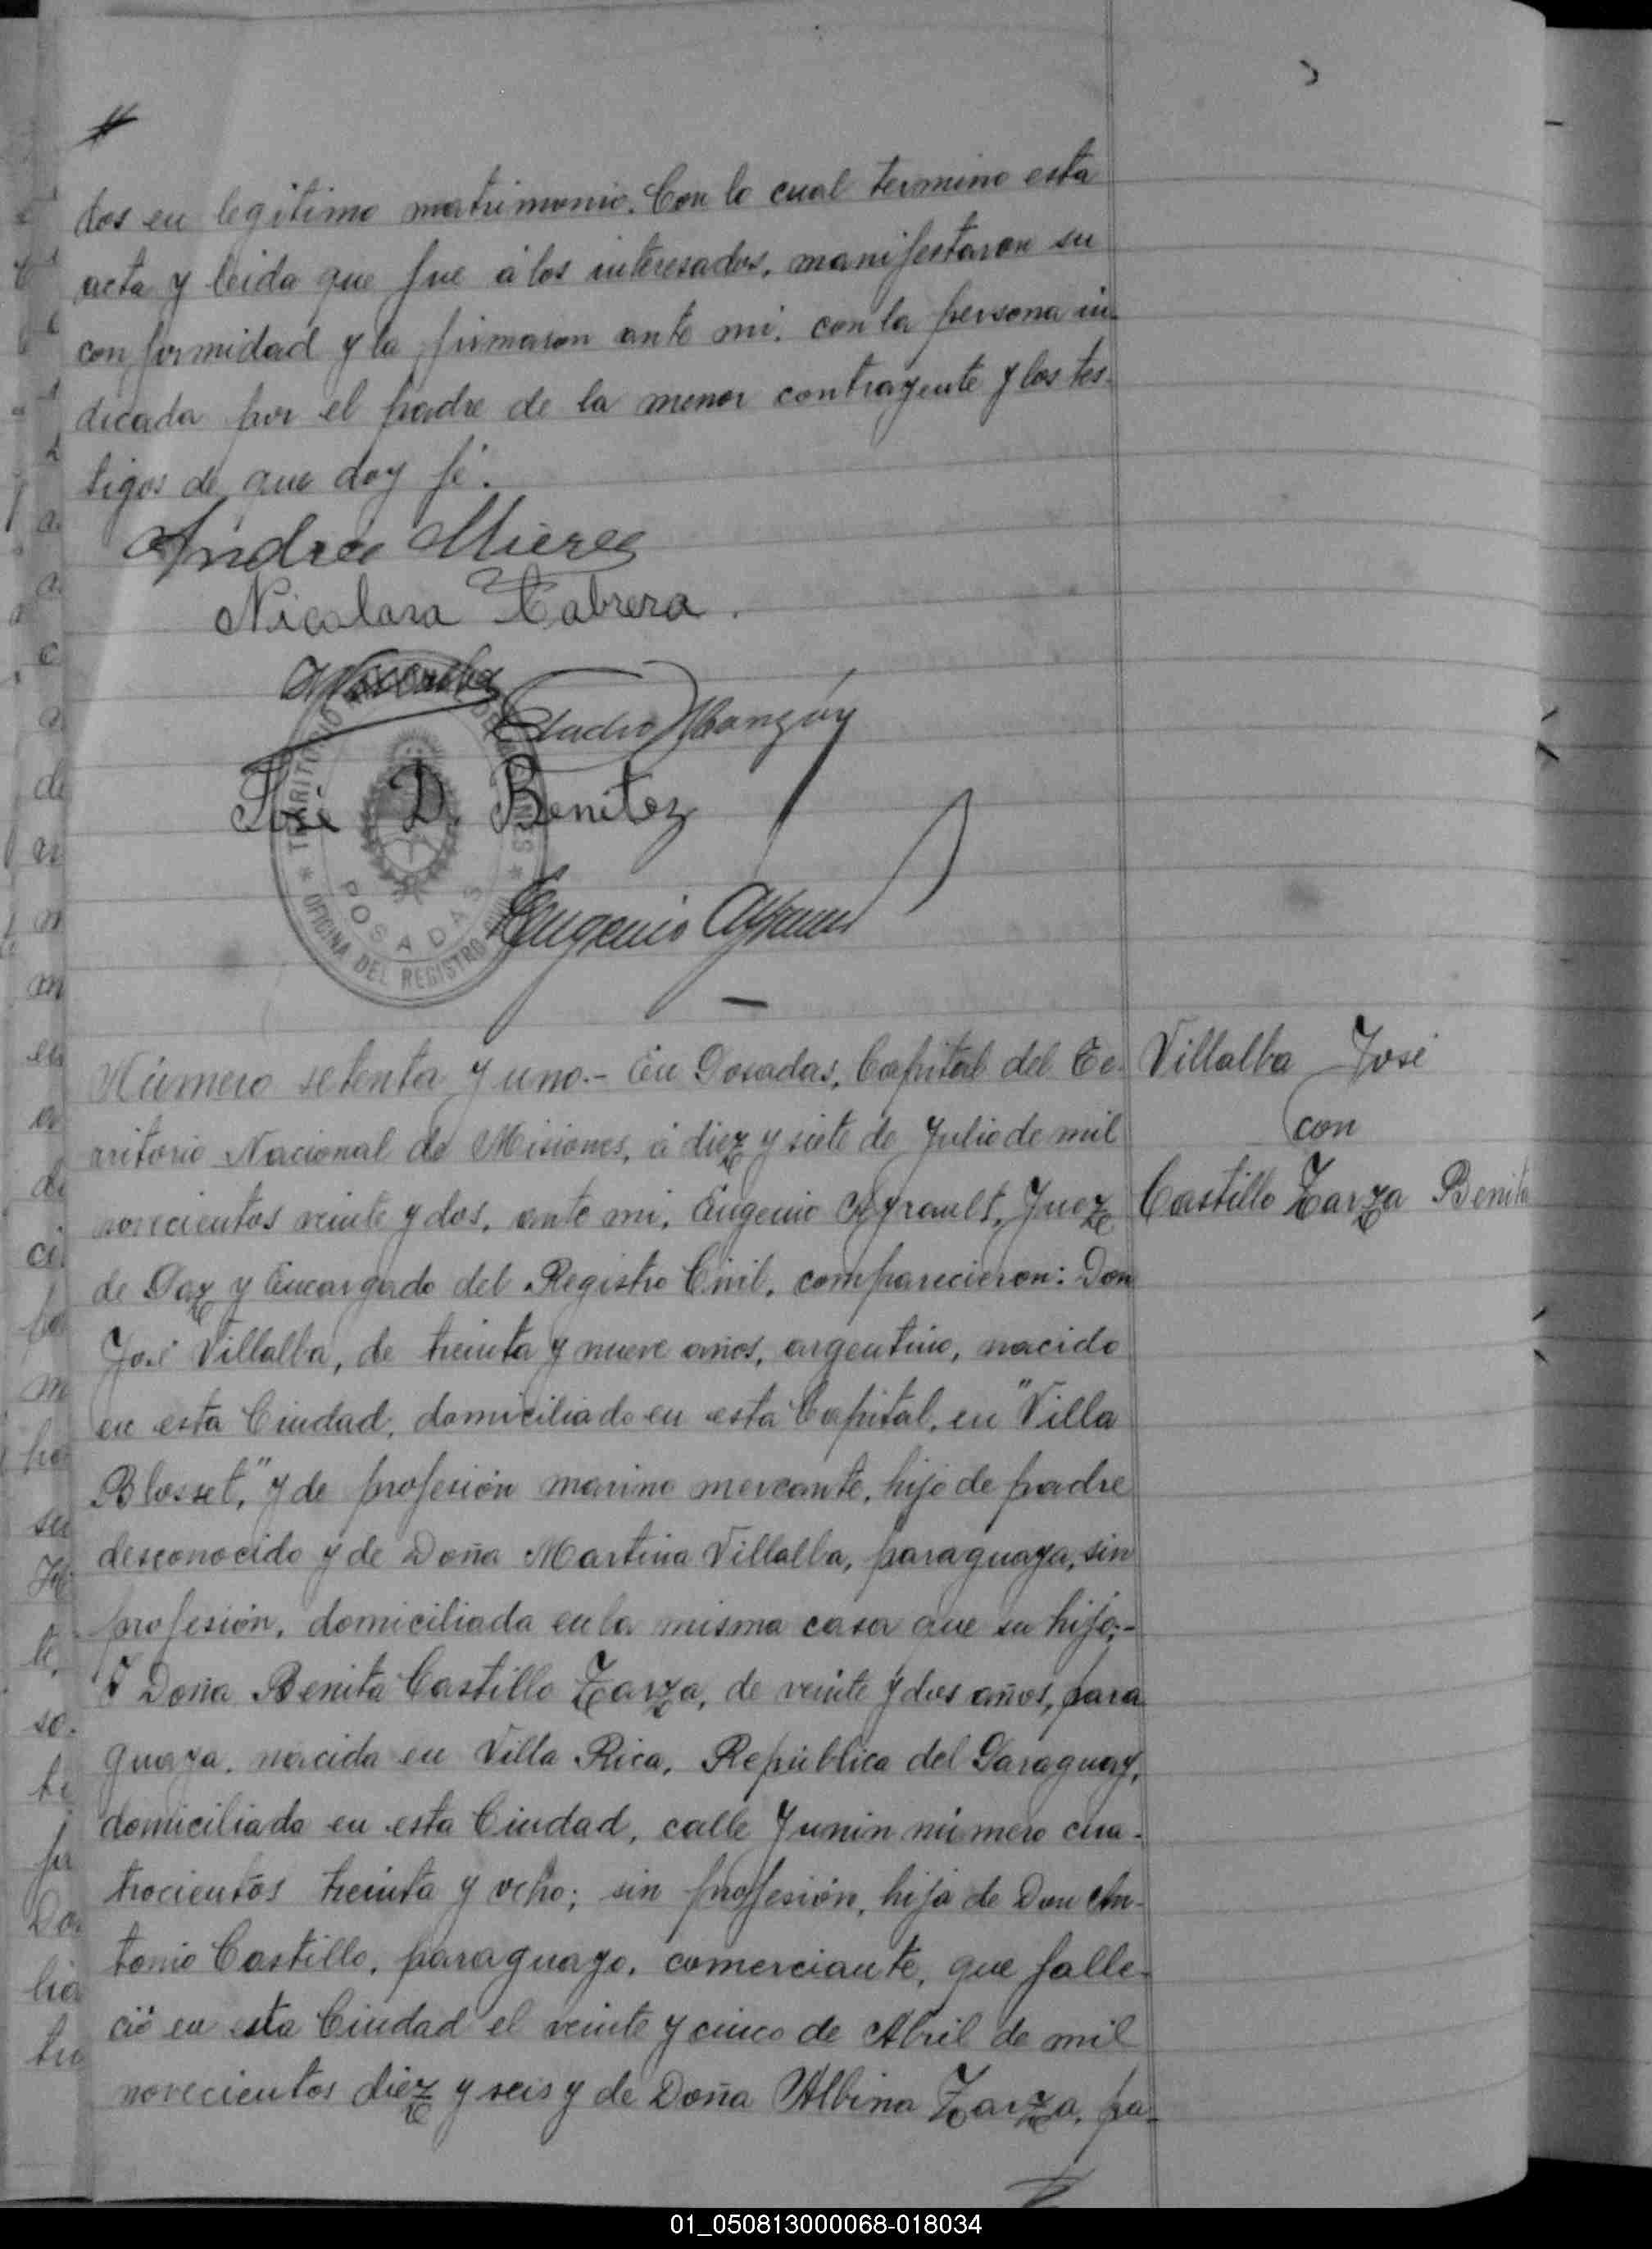 dos en legitimo matrimonio. Con lo cual termino esta
acta y leida que fue á los interesados, manifestaron su
conformidad y la firmaron ante mi, con la persona in-
dicada por el padre de la menor contrayente y los tes-
tigos de que doy fé.
Andres Mieres
Nicolasa Cabrera.
Eladio
José D. Benitez
TERRITORIO DE MISIONES
POSADAS
* OFICINA DEL REGISTRO *
Eugenio Ayrault
Número setenta y uno.- En Posadas, Capital del Te-
rritorio Nacional de Misiones, á diez y siete de Julio de mil
novecientos veinte y dos, ante mi, Eugenio Ayrault, Juez
de Paz y Encargado del Registro Civil, comparecieron: Don
José Villalba, de treinta y nueve años, argentino, nacido
en esta Ciudad, domiciliado en esta Capital, en "Villa
Blosset," y de profesión marino mercante, hijo de padre
desconocido y de Doña Martina Villalba, paraguaya, sin
profesión, domiciliada en la misma casa que su hijo;-
Y Doña Benita Castillo Zarza, de veinte y dos años, para
guaya, nacida en Villa Rica, República del Paraguay,
domiciliada en esta Ciudad, calle Junin número cua-
trocientos treinta y ocho; sin profesión, hija de Don An-
tonio Castillo, paraguayo, comerciante, que falle-
ció en esta Ciudad el veinte y cinco de Abril de mil
novecientos diez y seis y de Doña Albina Zarza, pa-
Villalba José
con
Castillo Zarza Benita
01_050813000068-018034